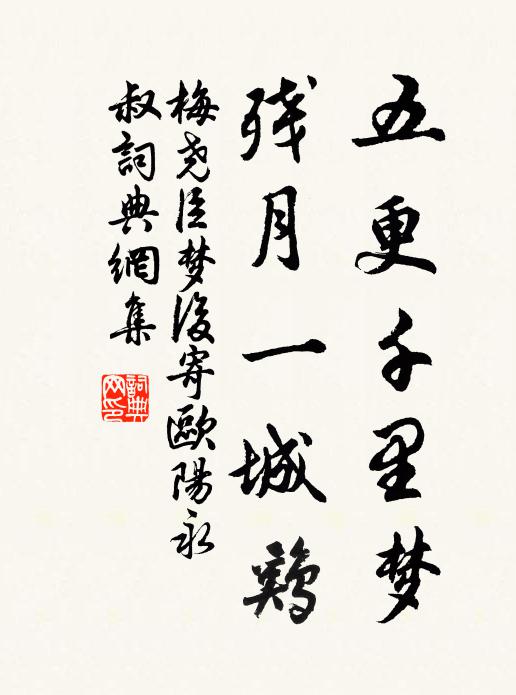 五更千里梦
残月一城鸡
梅尧臣梦后寄欧阳永
叔词典网集
词典网印